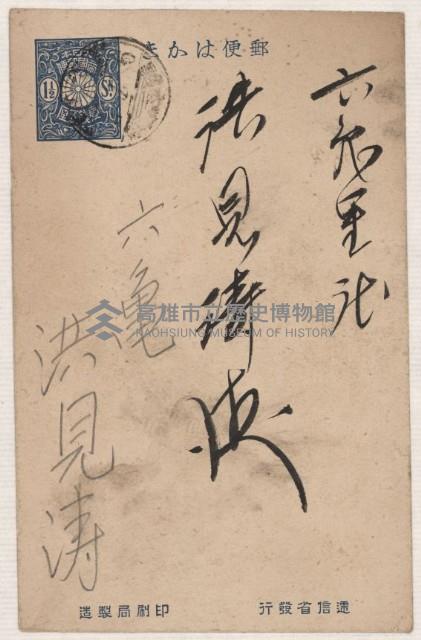 郵便はがき
1½ Sn.
六亀里社
洪見濤殿
六亀
洪見涛
高雄市立歷史博物館
KAOHSIUNG MUSEUM OF HISTORY
逓信省發行
印刷局製造